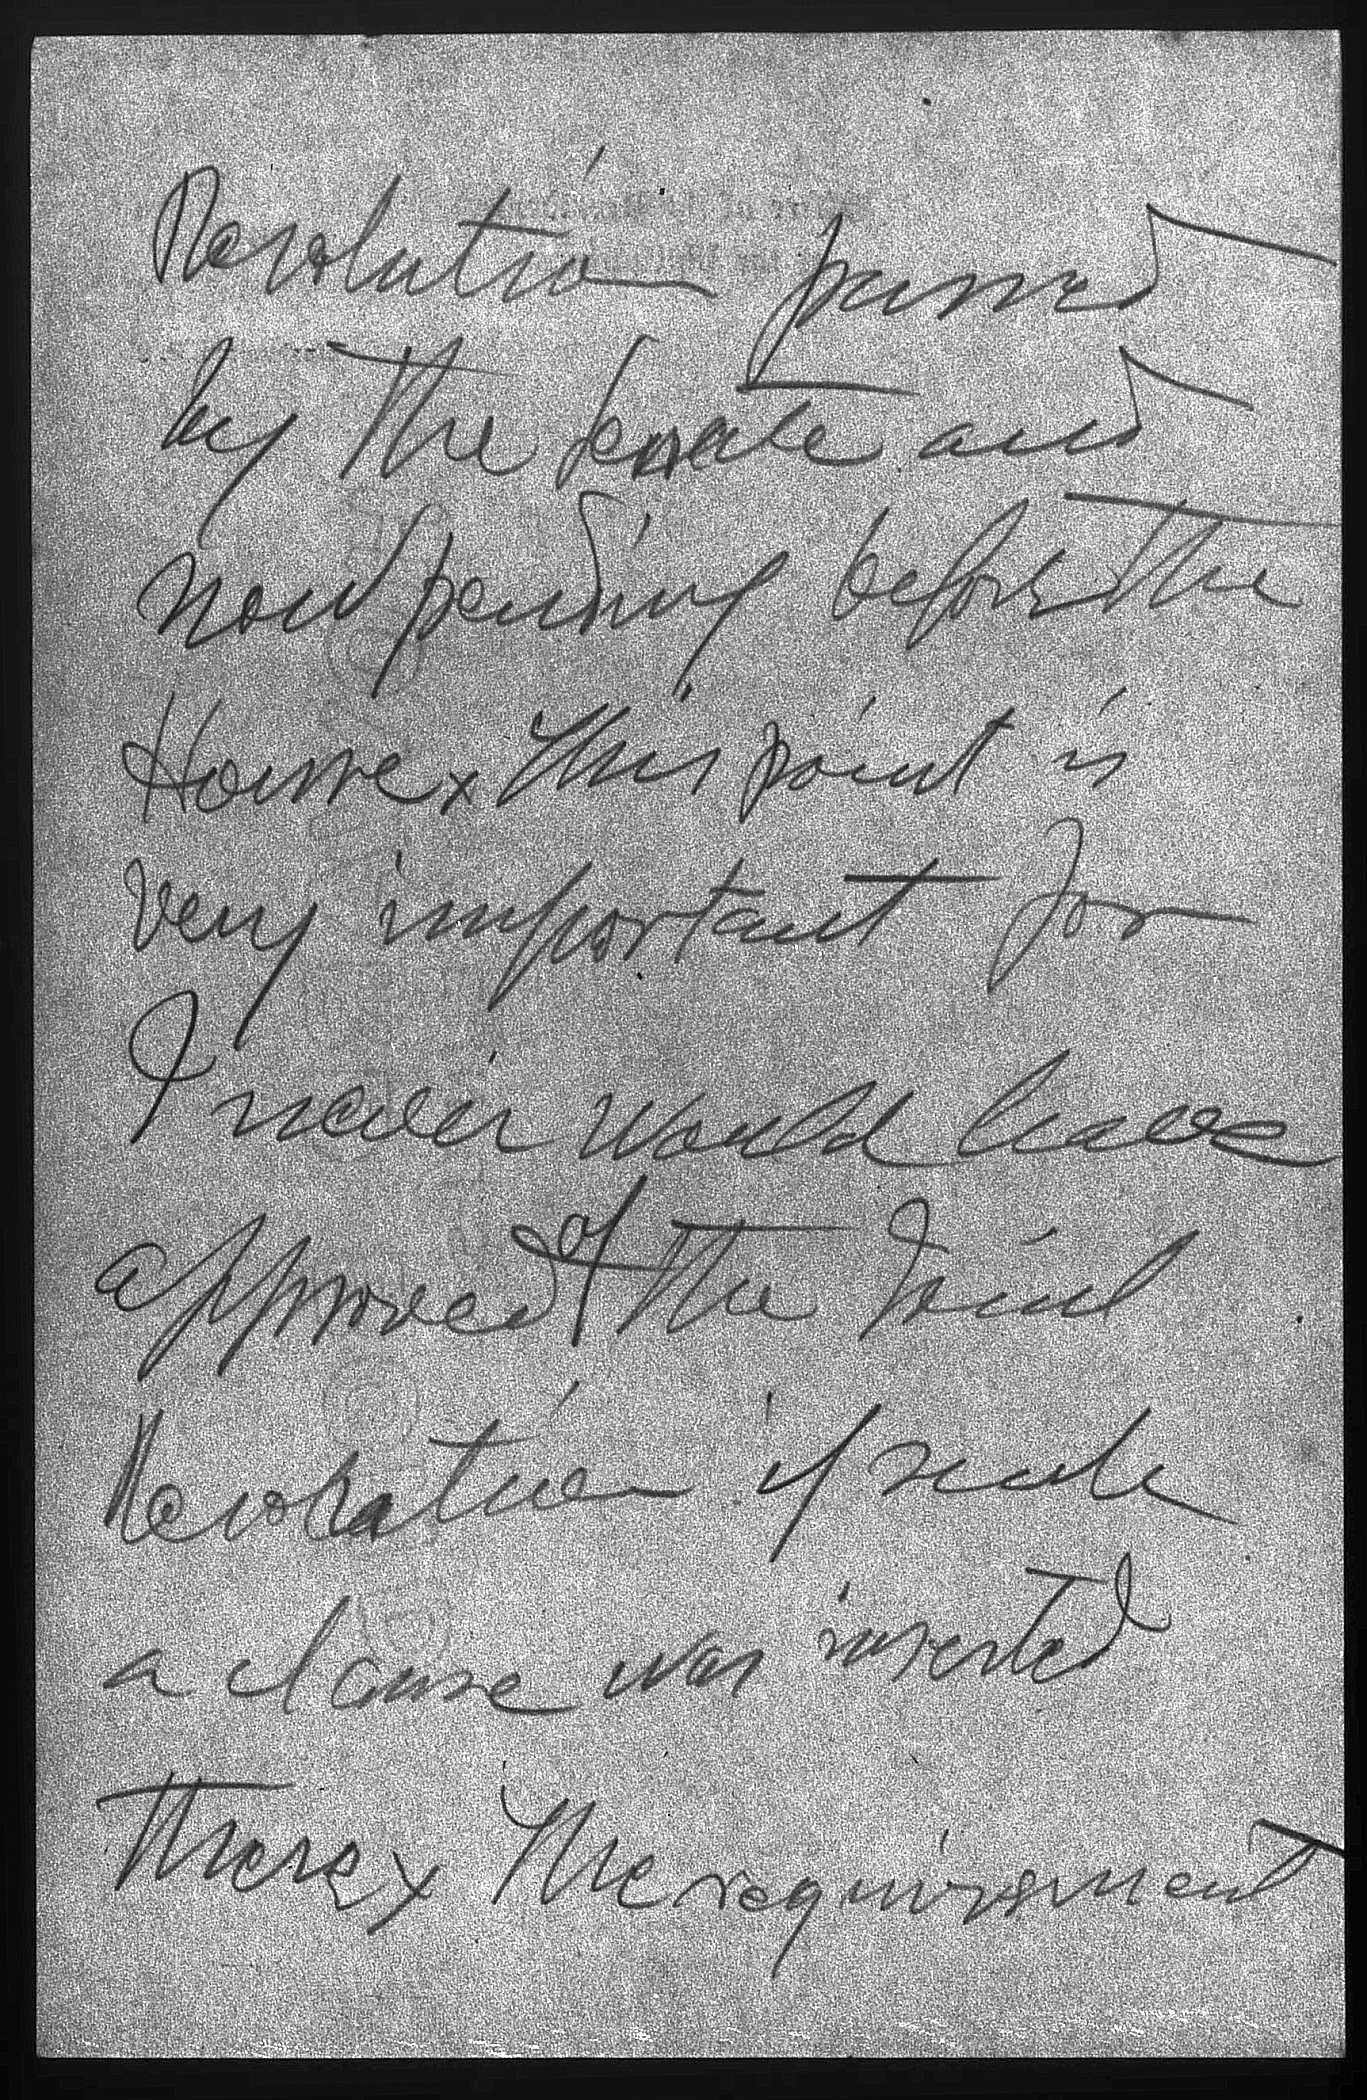 Resolution passed
by the Senate and
now pending before the
House x This point is
very important for
I never would have
approved of the Joint
Resolution if such
a clause was inserted
there x The requirement